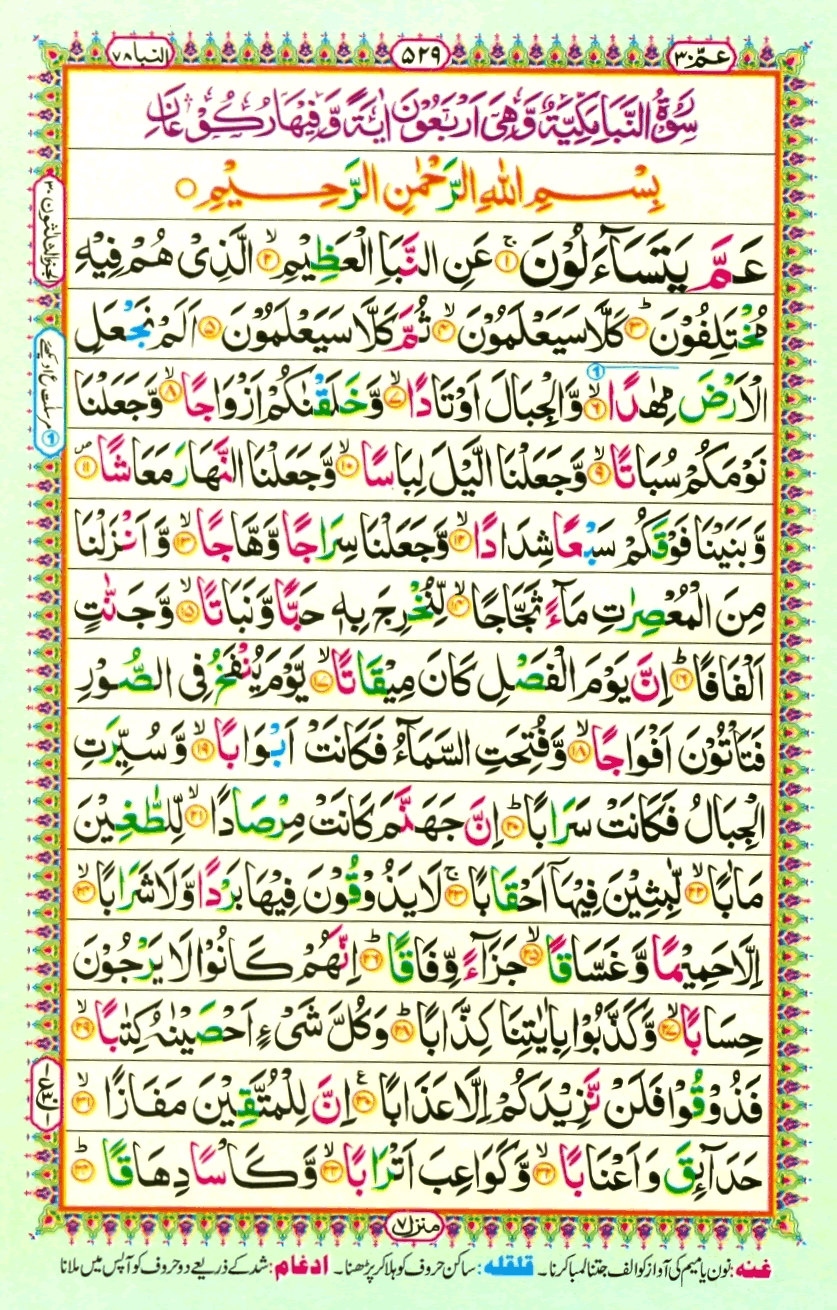 عمّ ۳۰
۵۲۹
النبا ۷۸
سُوْرَةُ النَّبَاِ مَكِّيَّةٌ وَّهِىَ اَرْبَعُوْنَ اٰيَةً وَّفِيْهَا رُكُوْعَانِ
بِسْــمِ اللهِ الرَّحْمٰنِ الرَّحِـــيْمِ ○
عَـمَّ يَتَسَآءَلُوْنَ ۚ﴿۱﴾ عَنِ النَّبَاِ الْعَظِيْمِ ۙ﴿۲﴾ الَّذِىْ هُمْ فِيْهِ
مُخْتَلِفُوْنَ ؕ﴿۳﴾ كَلَّا سَيَعْلَمُوْنَ ۙ﴿۴﴾ ثُمَّ كَلَّا سَيَعْلَمُوْنَ ﴿۵﴾ اَلَمْ نَجْعَلِ
الْاَرْضَ مِهٰدًا ۙ﴿۶﴾ وَّالْجِبَالَ اَوْتَادًا ۙ﴿۷﴾ وَّخَلَقْنٰكُمْ اَزْوَاجًا ۙ﴿۸﴾ وَّجَعَلْنَا
نَوْمَكُمْ سُبَاتًا ۙ﴿۹﴾ وَّجَعَلْنَا الَّيْلَ لِبَاسًا ۙ﴿۱۰﴾ وَّجَعَلْنَا النَّهَارَ مَعَاشًا ۪﴿۱۱﴾
وَّبَنَيْنَا فَوْقَكُمْ سَبْعًا شِدَادًا ۙ﴿۱۲﴾ وَّجَعَلْنَا سِرَاجًا وَّهَّاجًا ۙ﴿۱۳﴾ وَّاَنْزَلْنَا
مِنَ الْمُعْصِرٰتِ مَآءً ثَجَّاجًا ۙ﴿۱۴﴾ لِّنُخْرِجَ بِهٖ حَبًّا وَّنَبَاتًا ۙ﴿۱۵﴾ وَّجَنّٰتٍ
اَلْفَافًا ؕ﴿۱۶﴾ اِنَّ يَوْمَ الْفَصْلِ كَانَ مِيْقَاتًا ۙ﴿۱۷﴾ يَّوْمَ يُنْفَخُ فِى الصُّوْرِ
فَتَاْتُوْنَ اَفْوَاجًا ۙ﴿۱۸﴾ وَّفُتِحَتِ السَّمَآءُ فَكَانَتْ اَبْوَابًا ۙ﴿۱۹﴾ وَّسُيِّرَتِ
الْجِبَالُ فَكَانَتْ سَرَابًا ؕ﴿۲۰﴾ اِنَّ جَهَنَّمَ كَانَتْ مِرْصَادًا ۙ﴿۲۱﴾ لِّلطّٰغِيْنَ
مَاٰبًا ۙ﴿۲۲﴾ لّٰبِثِيْنَ فِيْهَآ اَحْقَابًا ۚ﴿۲۳﴾ لَا يَذُوْقُوْنَ فِيْهَا بَرْدًا وَّلَا شَرَابًا ۙ﴿۲۴﴾
اِلَّا حَمِيْمًا وَّغَسَّاقًا ۙ﴿۲۵﴾ جَزَآءً وِّفَاقًا ؕ﴿۲۶﴾ اِنَّهُمْ كَانُوْا لَا يَرْجُوْنَ
حِسَابًا ۙ﴿۲۷﴾ وَّكَذَّبُوْا بِاٰيٰتِنَا كِذَّابًا ؕ﴿۲۸﴾ وَكُلَّ شَىْءٍ اَحْصَيْنٰهُ كِتٰبًا ۙ﴿۲۹﴾
فَذُوْقُوْا فَلَنْ نَّزِيْدَكُمْ اِلَّا عَذَابًا ﴿۳۰﴾ ع اِنَّ لِلْمُتَّقِيْنَ مَفَازًا ۙ﴿۳۱﴾
حَدَآئِقَ وَاَعْنَابًا ۙ﴿۳۲﴾ وَّكَوَاعِبَ اَتْرَابًا ۙ﴿۳۳﴾ وَّكَاْسًا دِهَاقًا ؕ﴿۳۴﴾
منزل ۷
غنه: نون یا میم کی آواز کو الف جتنا لمبا کرنا۔ قلقله: ساکن حروف کو ہلا کر پڑھنا۔ ادغام: شد کے ذریعے دو حروف کو آپس میں ملانا